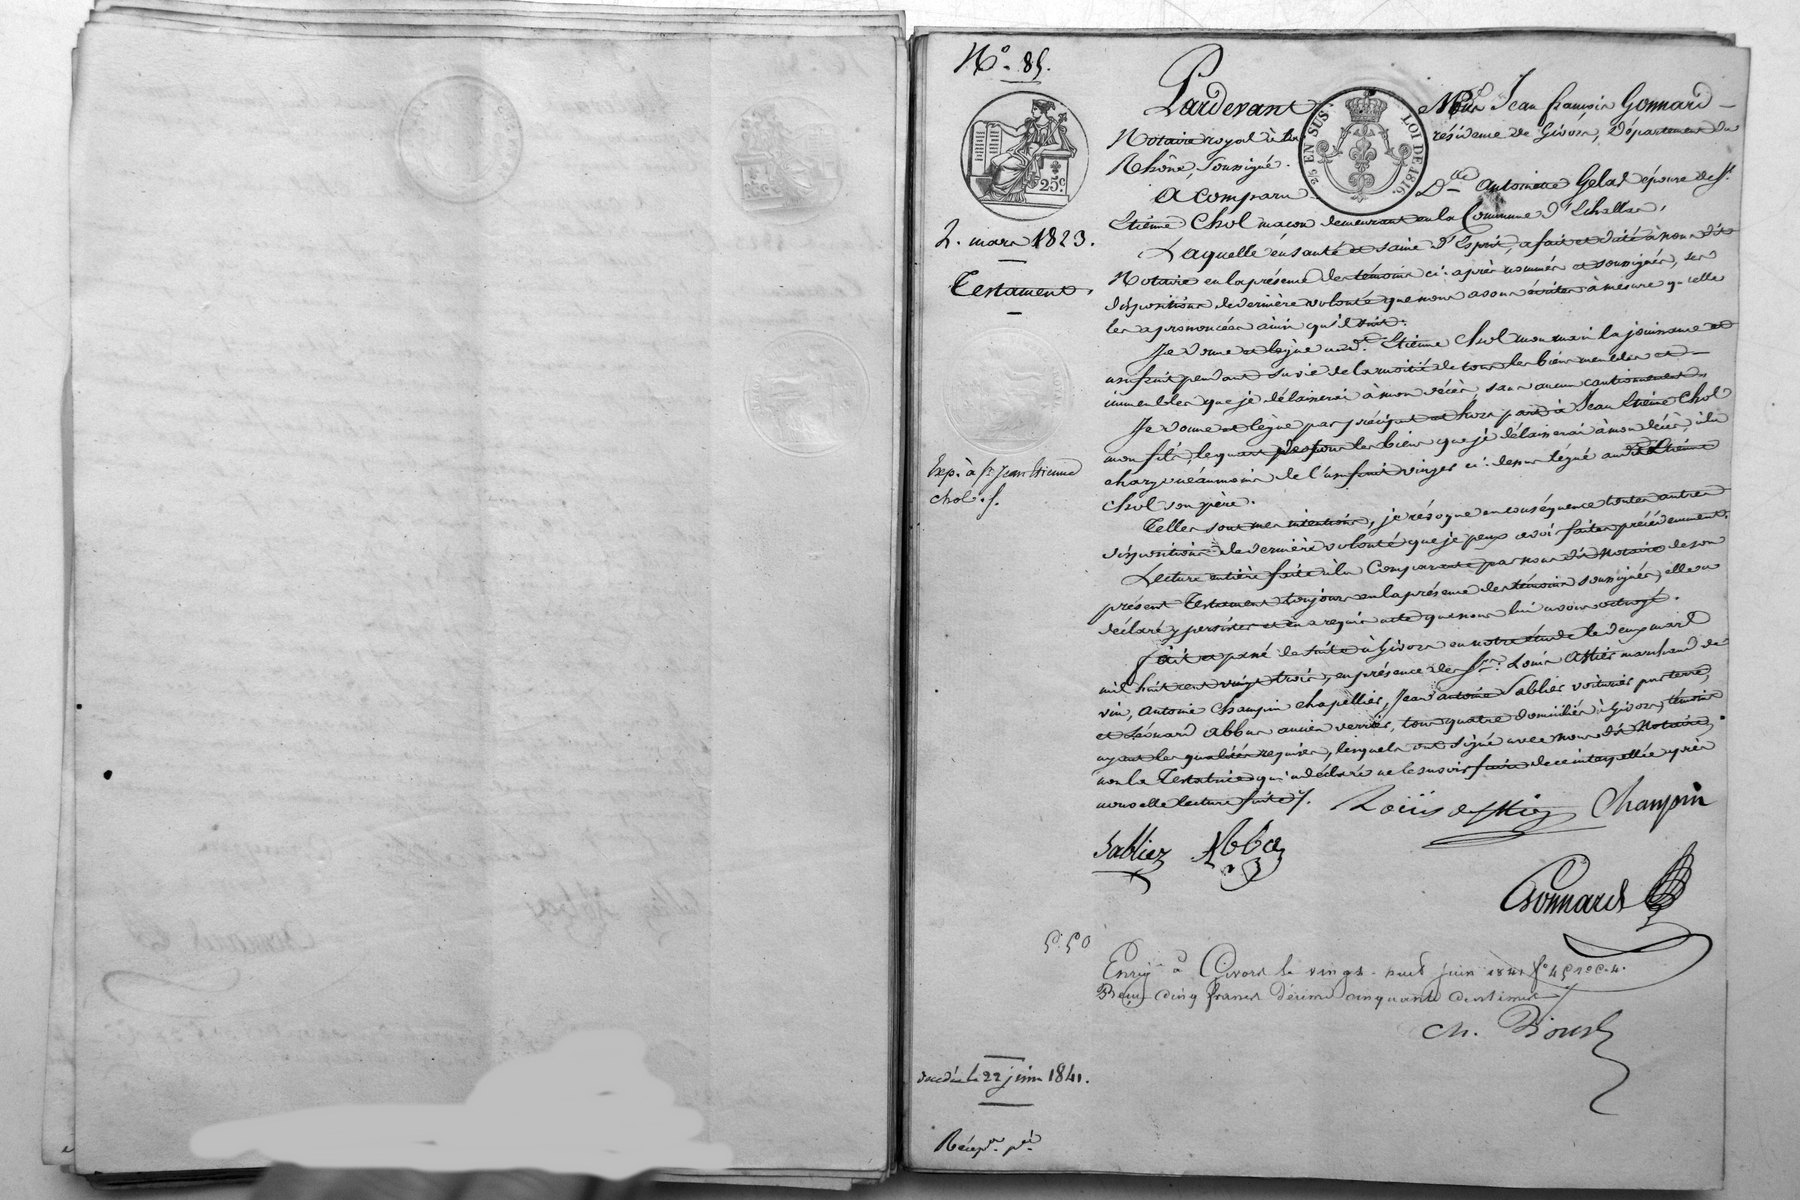 N.º 85.
2. mars 1823.
Testament.
Exp. à Sr Jean Etienne
Chol. f.
25c
25 EN SUS.
LOI DE 1816.
Pardevant Mtre Jean françois Gonnard
Notaire royal à la résidence de Givors, département du
Rhône, soussigné.
A comparu Dme Antoinette Gelas épouse de Sr.
Etienne Chol maçon demeurant en la Commune d'Echallas,
Laquelle en santé et saine d'Esprit, a fait et dicté à nous dit
Notaire en la présence des témoins ci-après nommés et soussignés, ses
dispositions de dernière volonté que nous avons écrites à mesure qu'elle
les a prononcées ainsi qu'il suit:
Je donne et lègue aud. Etienne Chol mon mari la jouissance et
usufruit pendant sa vie de la moitié de tous les biens meubles et
immeubles que je délaisserai à mon décès, sans aucun cautionnement.
Je donne et lègue par préciput et hors part à Jean Etienne Chol
mon fils, le quart des biens que je délaisserai à mon décès, à la
charge néanmoins de l'usufruit viager ci-dessus légué aud. Etienne
Chol son père.
Telles sont mes intentions, je révoque en conséquence toutes autres
dispositions de dernière volonté que je peux avoir faites précédemment.
Lecture entière faite à la Comparante par nous dit Notaire de son
présent Testament toujours en la présence des témoins soussignés, elle a
déclaré y persister et en a requis acte que nous lui avons octroyé.
fait et passé de suite à Givors en notre étude le deux mars
mil huit cent vingt trois, en présence des Srs. Louis Astier marchand de
vin, Antoine Champin chapellier, Jean Antoine Sablier voiturier par terre,
et Léonard Abba ancien verrier, tous quatre domiciliés à Givors, témoins
ayant les qualités requises, lesquels ont signé avec nous dit Notaire,
non la Testatrice qui a déclaré ne le savoir faire de ce interpellée après
nouvelle lecture faite.
Louis astier Champin
Sablier Abba
Gonnard
5.50
Enregé à Givors le vingt-huit juin 1841 fo 45 ro C. 4.
Reçu cinq francs décime cinquante centimes
Ch.
décédée le 22 juin 1841.